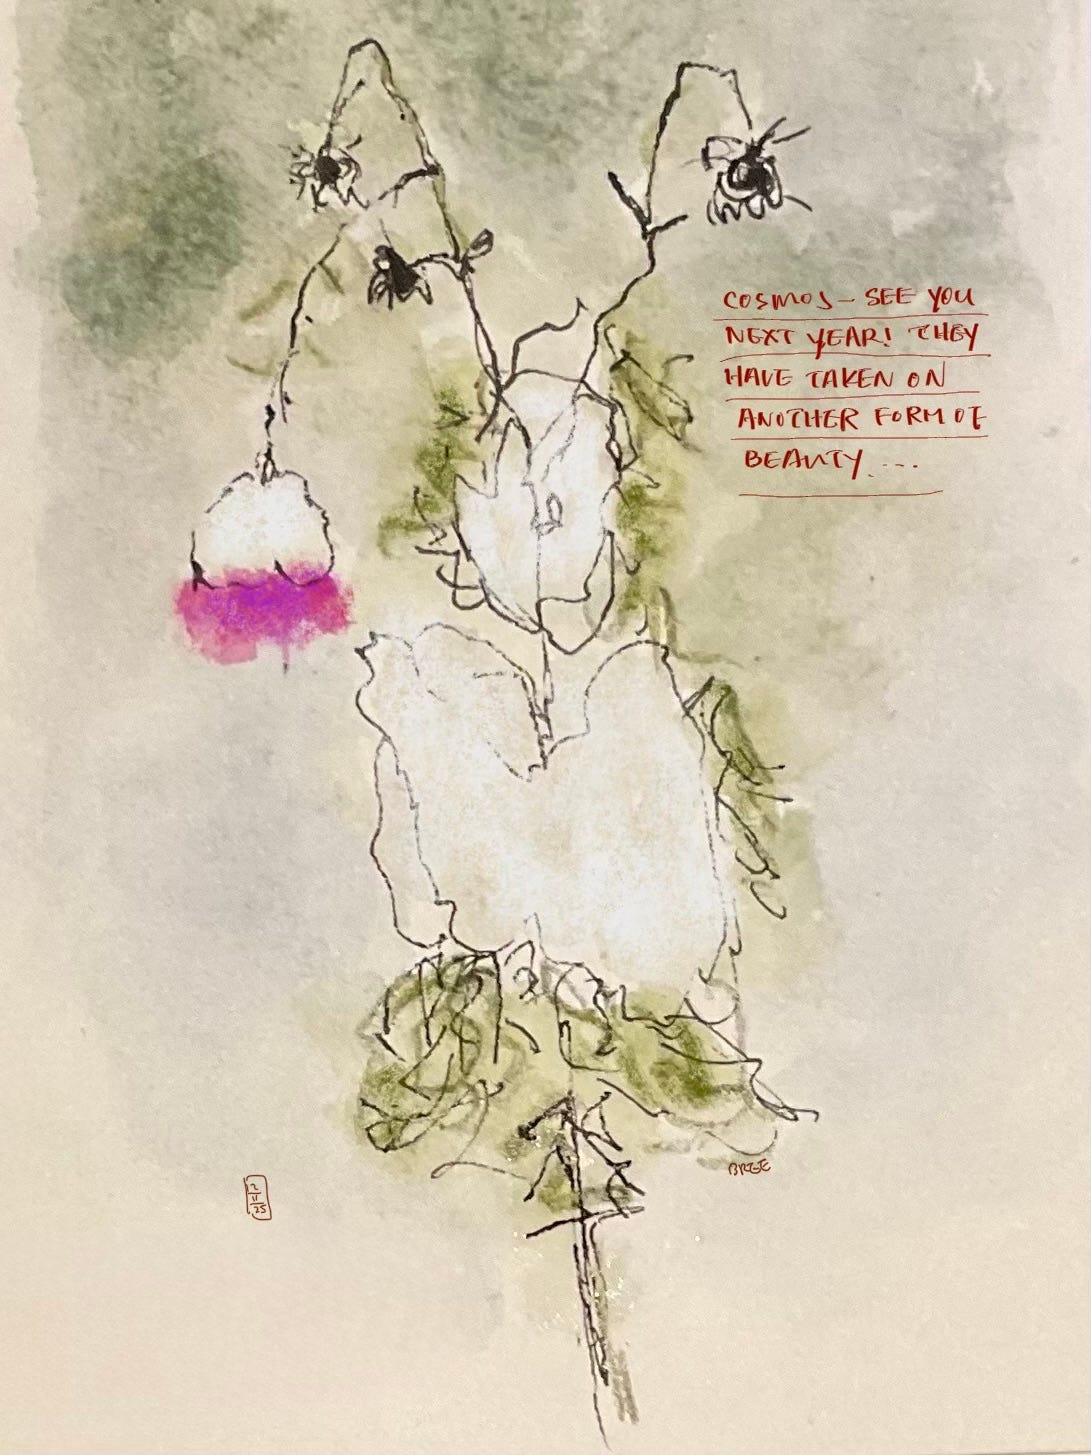 COSMOS – SEE YOU
NEXT YEAR! THEY
HAVE TAKEN ON
ANOTHER FORM OF
BEAUTY ....
2
11
25